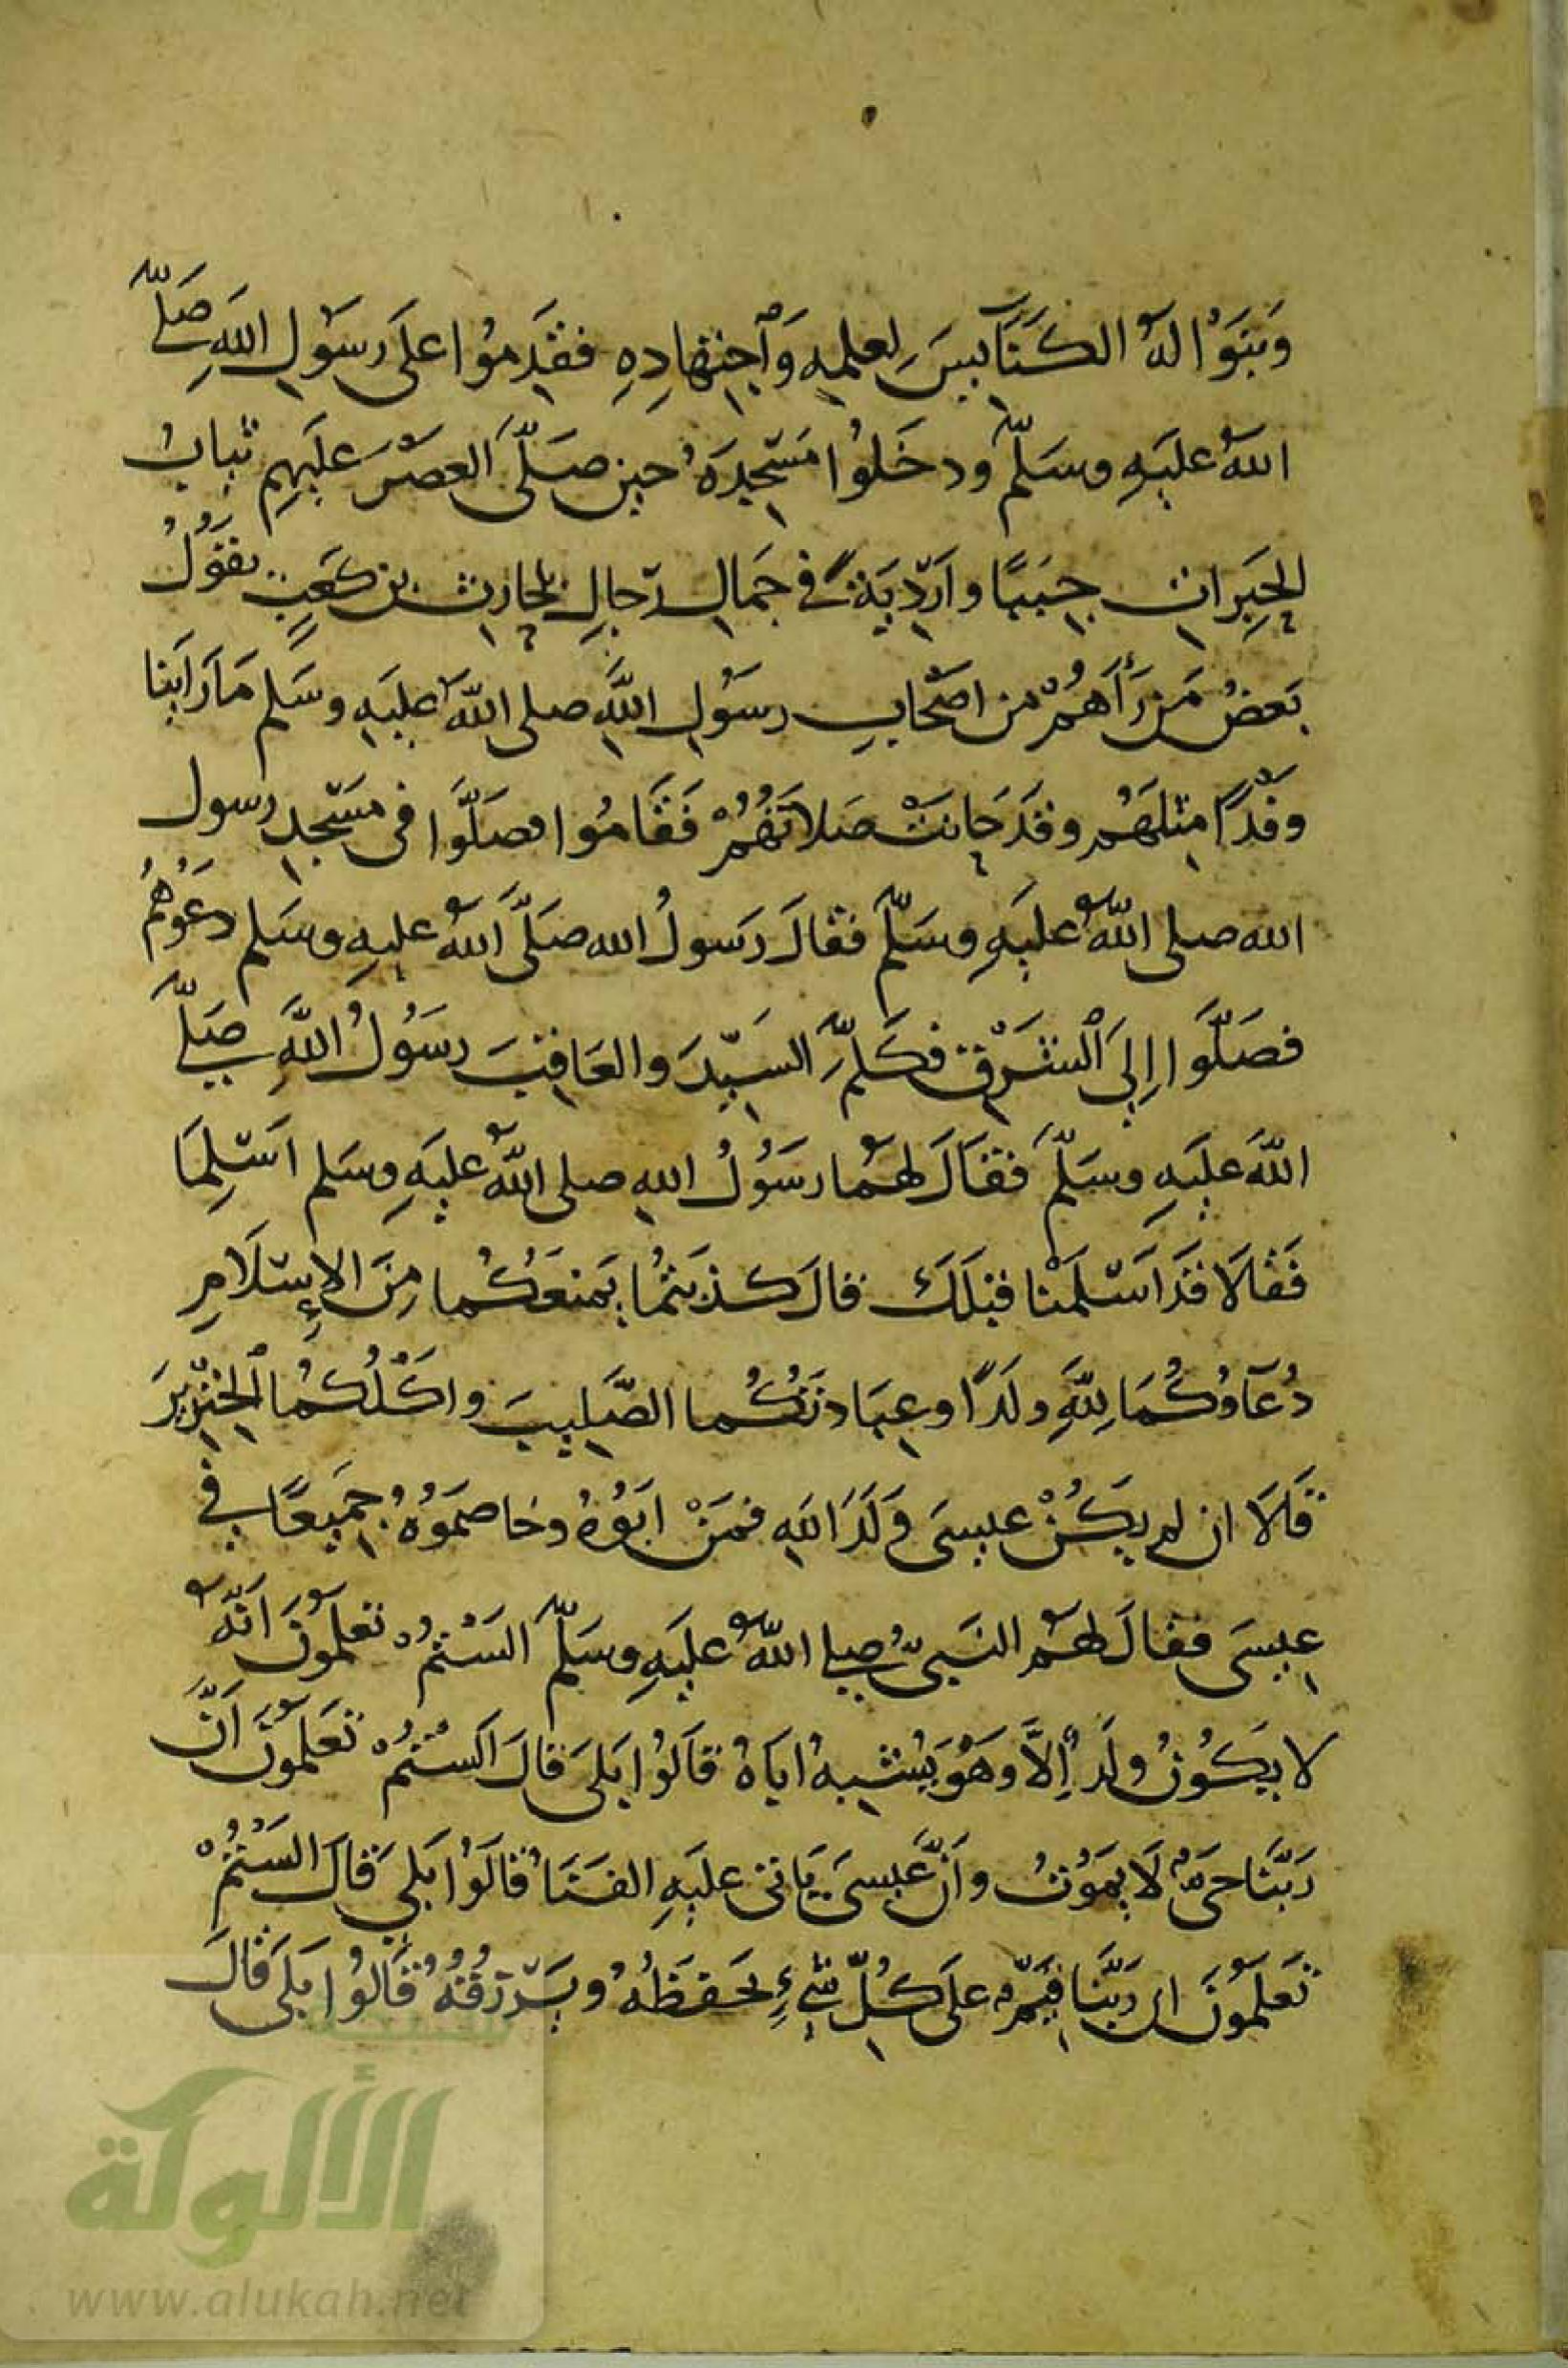 وَبَنَوْا لَهُ الكَنَايِسَ لِعِلمِهِ وَٱجتِهادِهِ فقَدِمُوا عَلَى رسَوُلِ اللهِ صَلَّى
اللهُ عليَهِ وسَلَّم ودخَلوُا مَسْجِدَهُ حين صَلَّى العَصْرَ عليَهِم ثيابُ
الحِبَراتِ جِبَبًا وأَرْدِيَةً في جَمالِ رجالِ بلحارث بن كعَبٍ يقَوُلُ
بَعضُ مَن رَأَهُمْ من اصْحابِ رسَوُلِ اللَّهِ صلى اللَّهُ عليَهِ وسَلم مَا رَاَينا
وَفْدًا مِثلَهَمُ وقدَ حَانَتْ صَلاتُهُمْ فَقَامُوا فصَلَّوْا في مَسْجِدِ رسول
الله صلى اللَّهُ عليَهِ وسَلَّم فقالَ رَسولُ الله صَلَّى اَللَّهُ عليهِ وسَلم دَعُوهُمُ
فصَلَّوْا إِلىَ ٱلشَرْقِ فكَلَّمَ السَيِّدَ والعَاقِبَ رسَوُلُ اللَّهِ صَلَّى
اللَّهُ عليَهِ وسَلَّمَ فقَالَ لهَمُا رسَوُلُ اللهِ صلى اللَّهُ عليَهِ وسَلم اَسْلِمَا
فَقالاَ قَدَ اَسْلَمْنا قبْلَكَ قالَ كذَبتُمُا يَمنَعَكُما مِنَ الإِسْلاَمِ
دُعَآؤكُمَا لِلَّهِ ولَدًا وعِبَادتَكُما الصَّلِيبَ واكْلُكُمُا ٱلخِنْزِيرَ
قَالاَ ان لم يكَنُْ عيِسىَ وَلَدَ اللهِ فمَنْ ابَوُهُ وخاصَموُهُ جمَيِعًا في
عيِسىَ فقالَ لهَمُ النَبىُّ صلى اللَّهُ عليَهِ وسَلَّمَ السَتُمْ تعَلمَوُنَ انَّهُ
لا يكَوُنُ ولَدٌ إِلاَّ وهَوُ يُشْبِهُ ابَاهُ قاَلوُا بَلىَ قالَ السَتُمْ تعَلمَوُنَ اَنَّ
رَبَّنَا حىٌَّ لاَ يمَوُتُ وأَنَّ عِيسىَ يَاتى عليَهِ الفَنَاءُ قالَوُا بَلىَ قالَ السَتُمْ
تعَلَموُنَ ان رَبَّنَا قَيِّمٌ علَى كُلِّ شَيءٍ يحَفَظُهُ ويَرْزقُهُ قالوُا بَلَى قالَ
الألوكة
www.alukah.net